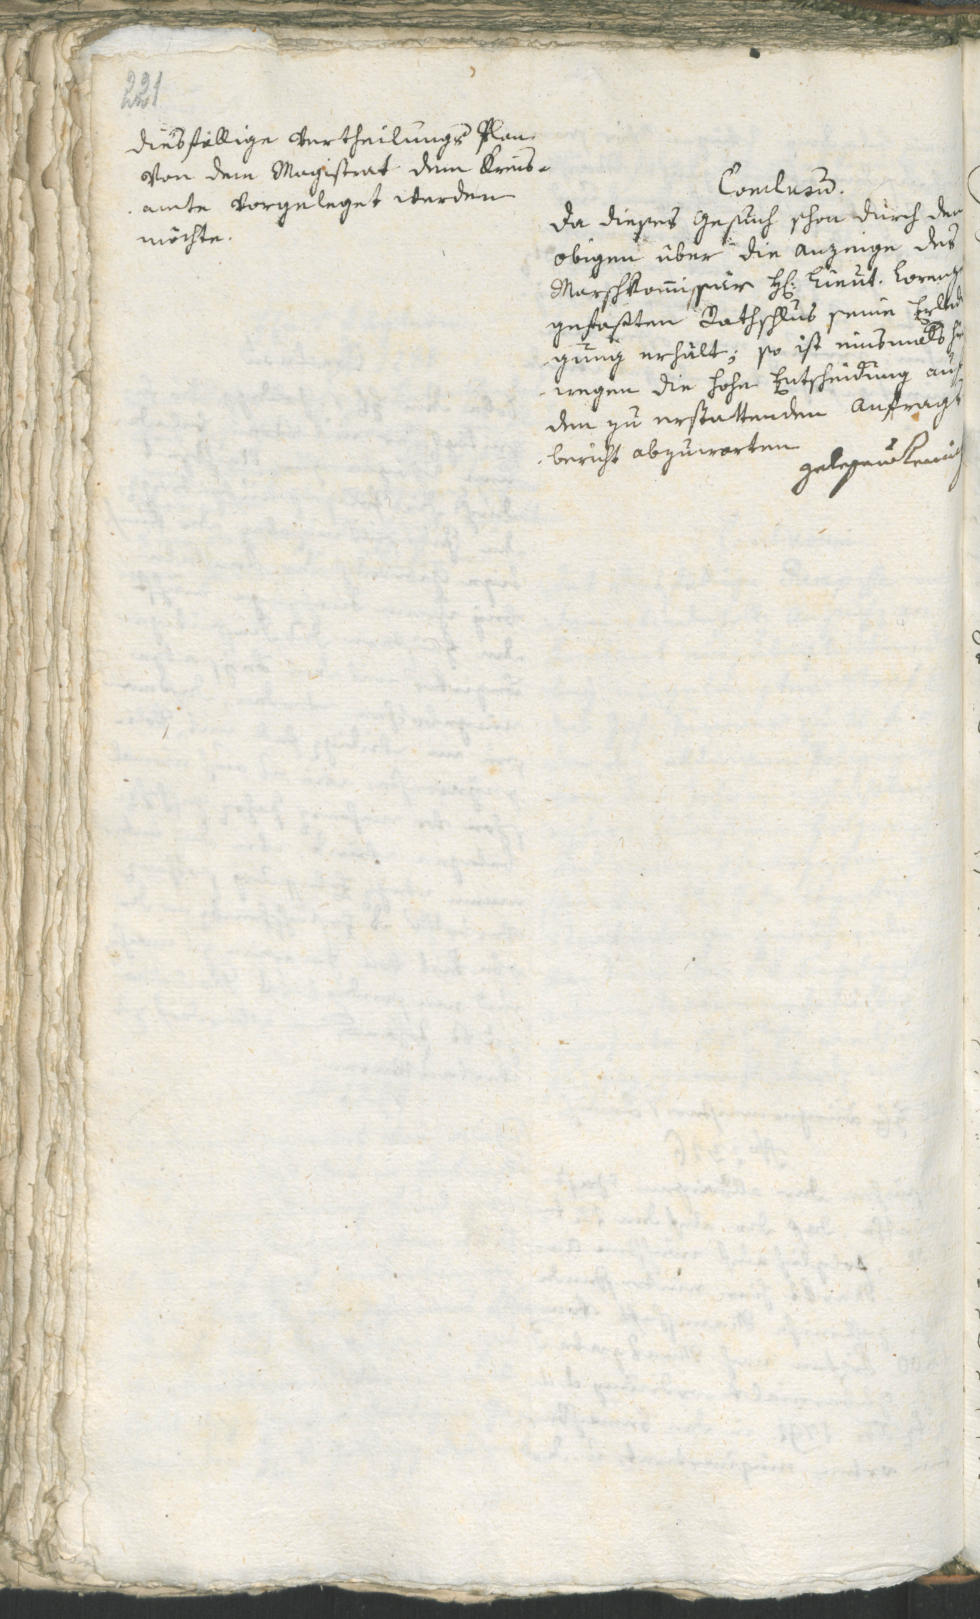 221
diesfällige Vertheilungs Plan
von dem Magistrat dem Kreis-
amte vorgeleget werden
möchte.
Conclusū.
Da dieses Gesuch schon durch den
obigen über die Anzeige des
Marschkom̄issair H: Lieut. Lorenz
gefasten Rathschlus seine Erledi
gung erhält; so ist einsmals hie
wegen die hohe Entscheidung auf
den zu erstattenden Anfrags
bericht abzuwarten